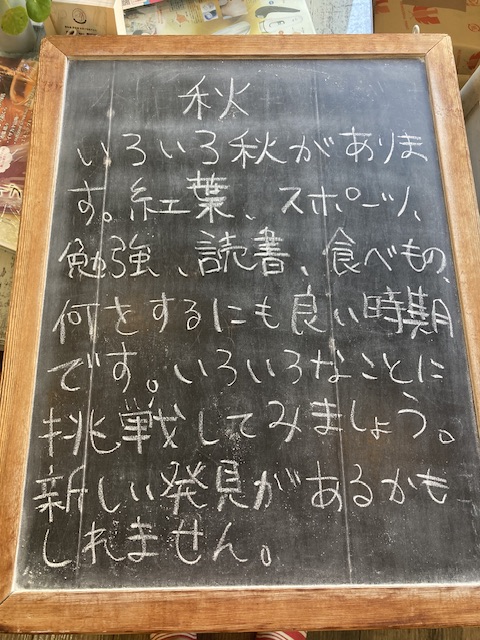 秋
いろいろ秋がありま
す。紅葉、スポーツ、
勉強、読書、食べもの、
何をするにも良い時期
です。いろいろなことに
挑戦してみましょう。
新しい発見があるかも
しれません。